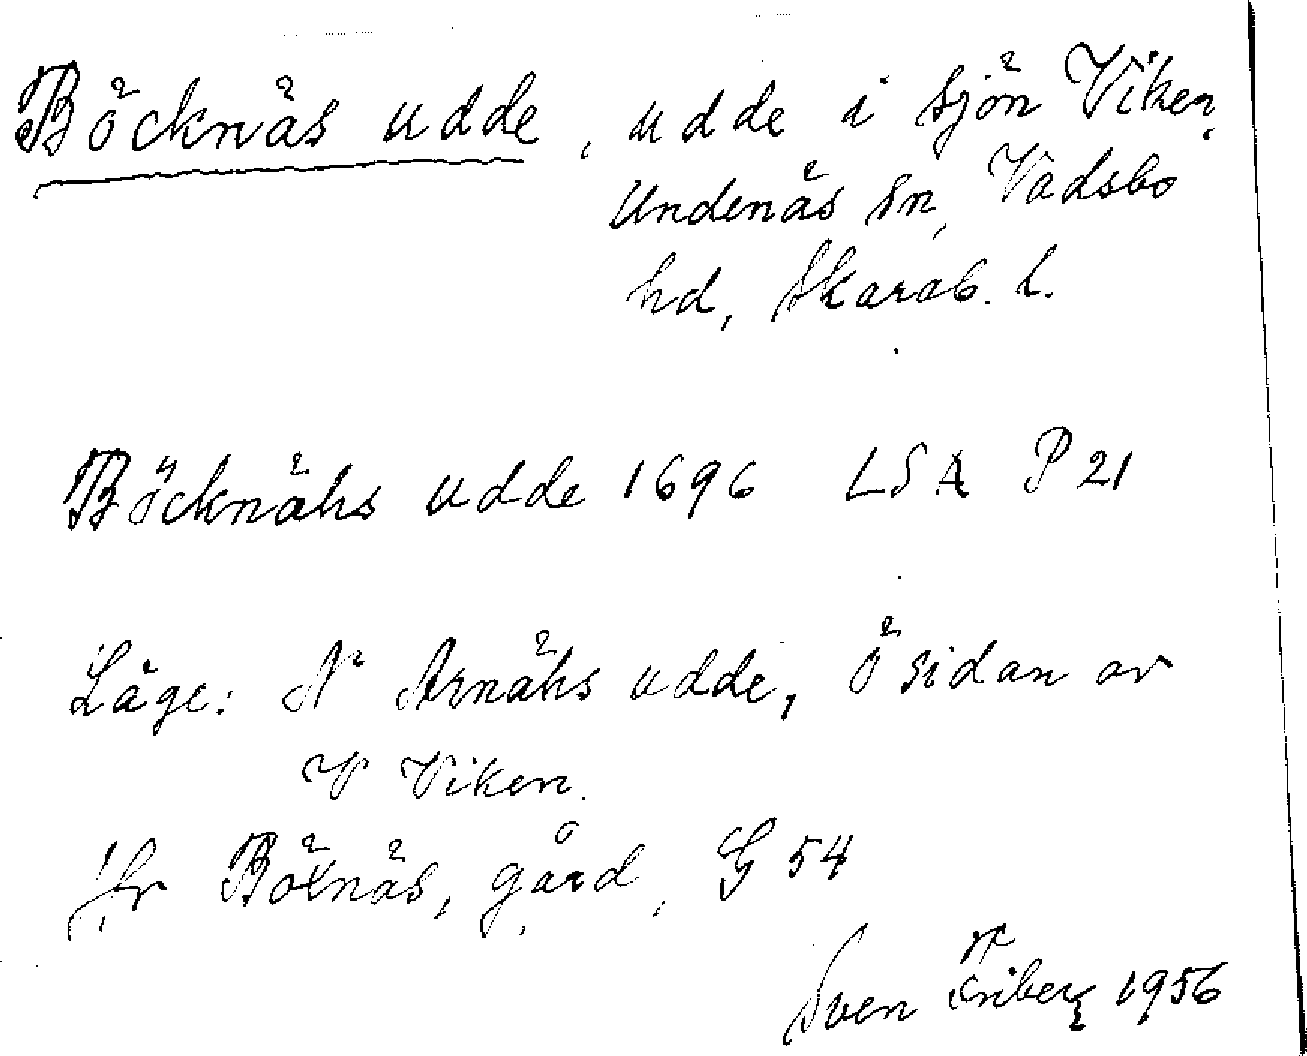 Böcknäs udde, udde i sjön Viken,
Undenäs sn, Vadsbo
hd, Skarab. l.
Böcknähs udde 1696 LSA P 21
Läge: N Arnähs udde, Ö sidan av
V Viken.
Jfr Böxnäs, gård, G 54
Sven Friberg 1956